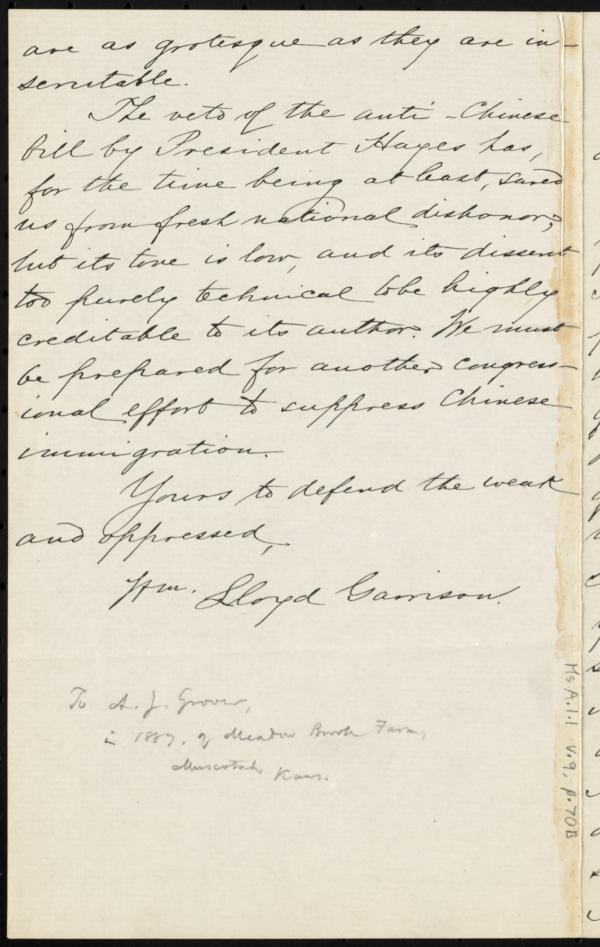 are as grotesque as they are in-
scrutable.
The veto of the anti-Chinese
bill by President Hayes has,
for the time being at least, saved
us from fresh national dishonor;
but its tone is low, and its dissent
too purely technical to be highly
creditable to its author. We must
be prepared for another congress-
ional effort to suppress Chinese
immigration.
Yours to defend the weak
and oppressed,
Wm. Lloyd Garrison.
To A. J. Grover,
in 1887, of Meadow Brook Farm,
Muscotah, Kans.
Ms A.1.1 v.9, p.70B